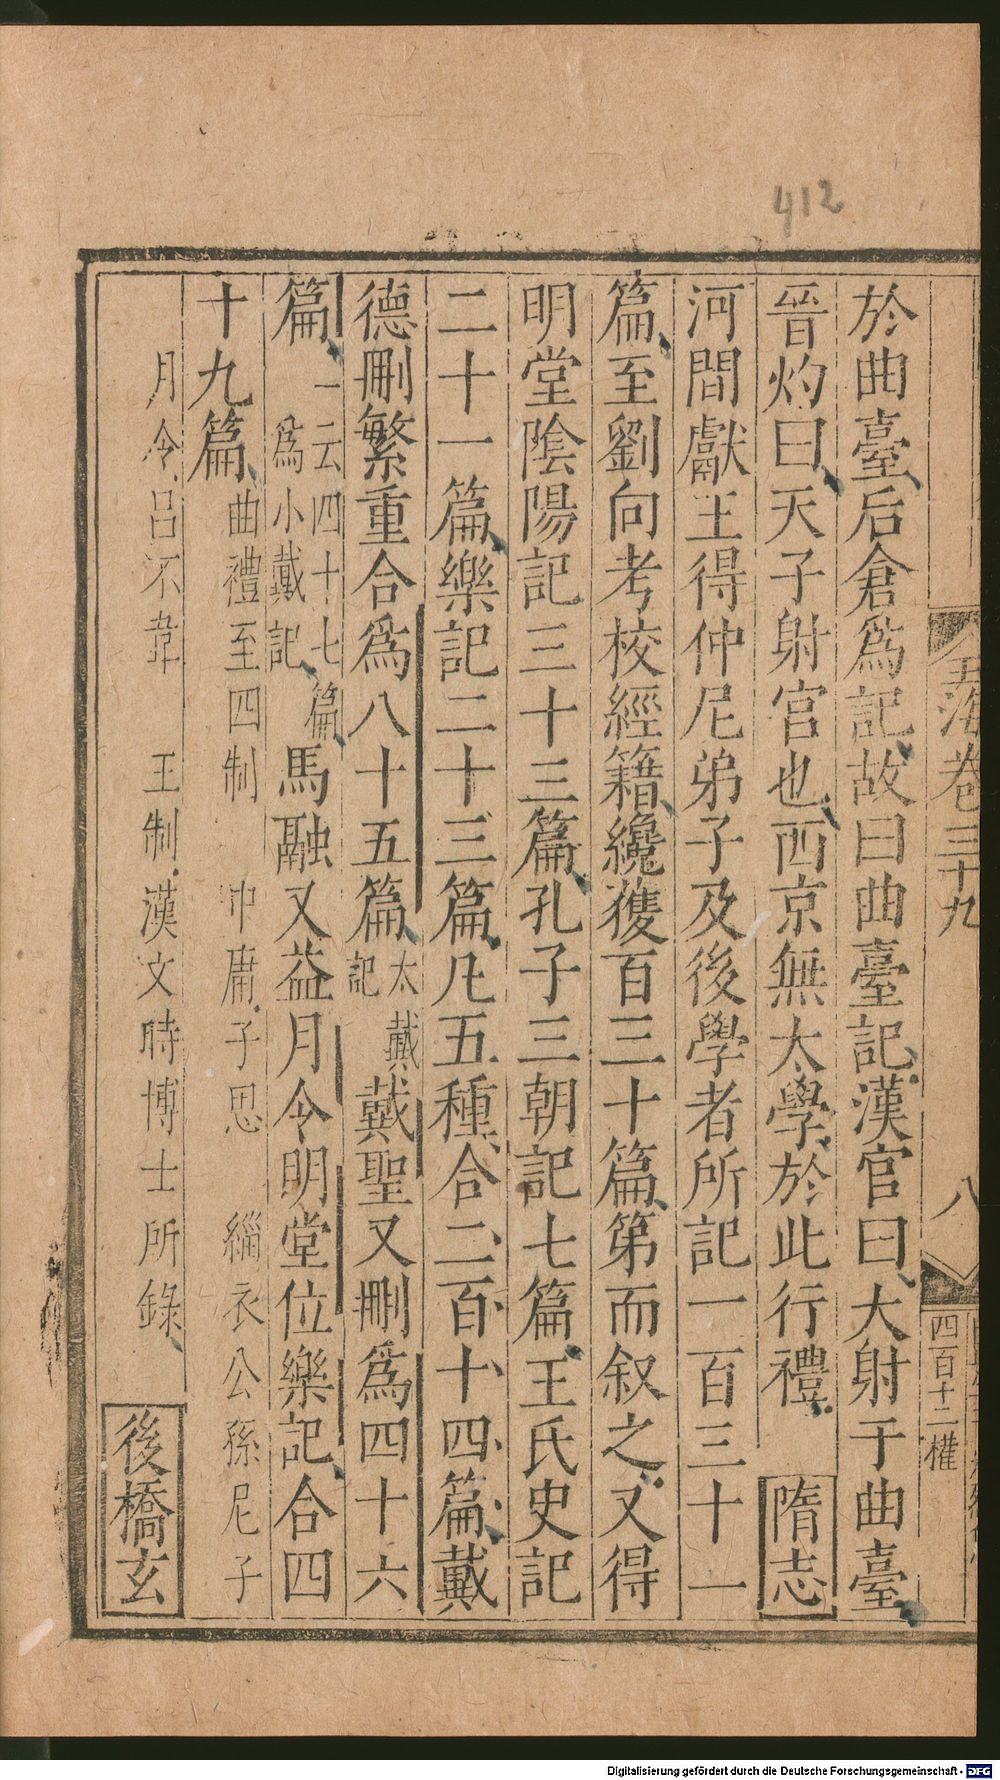 412
玉海卷三十九
八
四百十二權
於曲臺后倉為記故曰曲臺記漢官曰大射于曲臺
晉灼曰天子射宮也西京無太學於此行禮 隋志
河間獻王得仲尼弟子及後學者所記一百三十一
篇至劉向考校經籍纔獲百三十篇第而叙之又得
明堂陰陽記三十三篇孔子三朝記七篇王氏史記
二十一篇樂記二十三篇凡五種合二百十四篇戴
德刪繁重合為八十五篇太戴記戴聖又刪為四十六
篇一云四十七篇為小戴記馬融又益月令明堂位樂記合四
十九篇曲禮至四制 中庸子思 緇衣公孫尼子
月令呂不韋 王制漢文時博士所錄 後橋玄
Digitalisierung gefördert durch die Deutsche Forschungsgemeinschaft - DFG